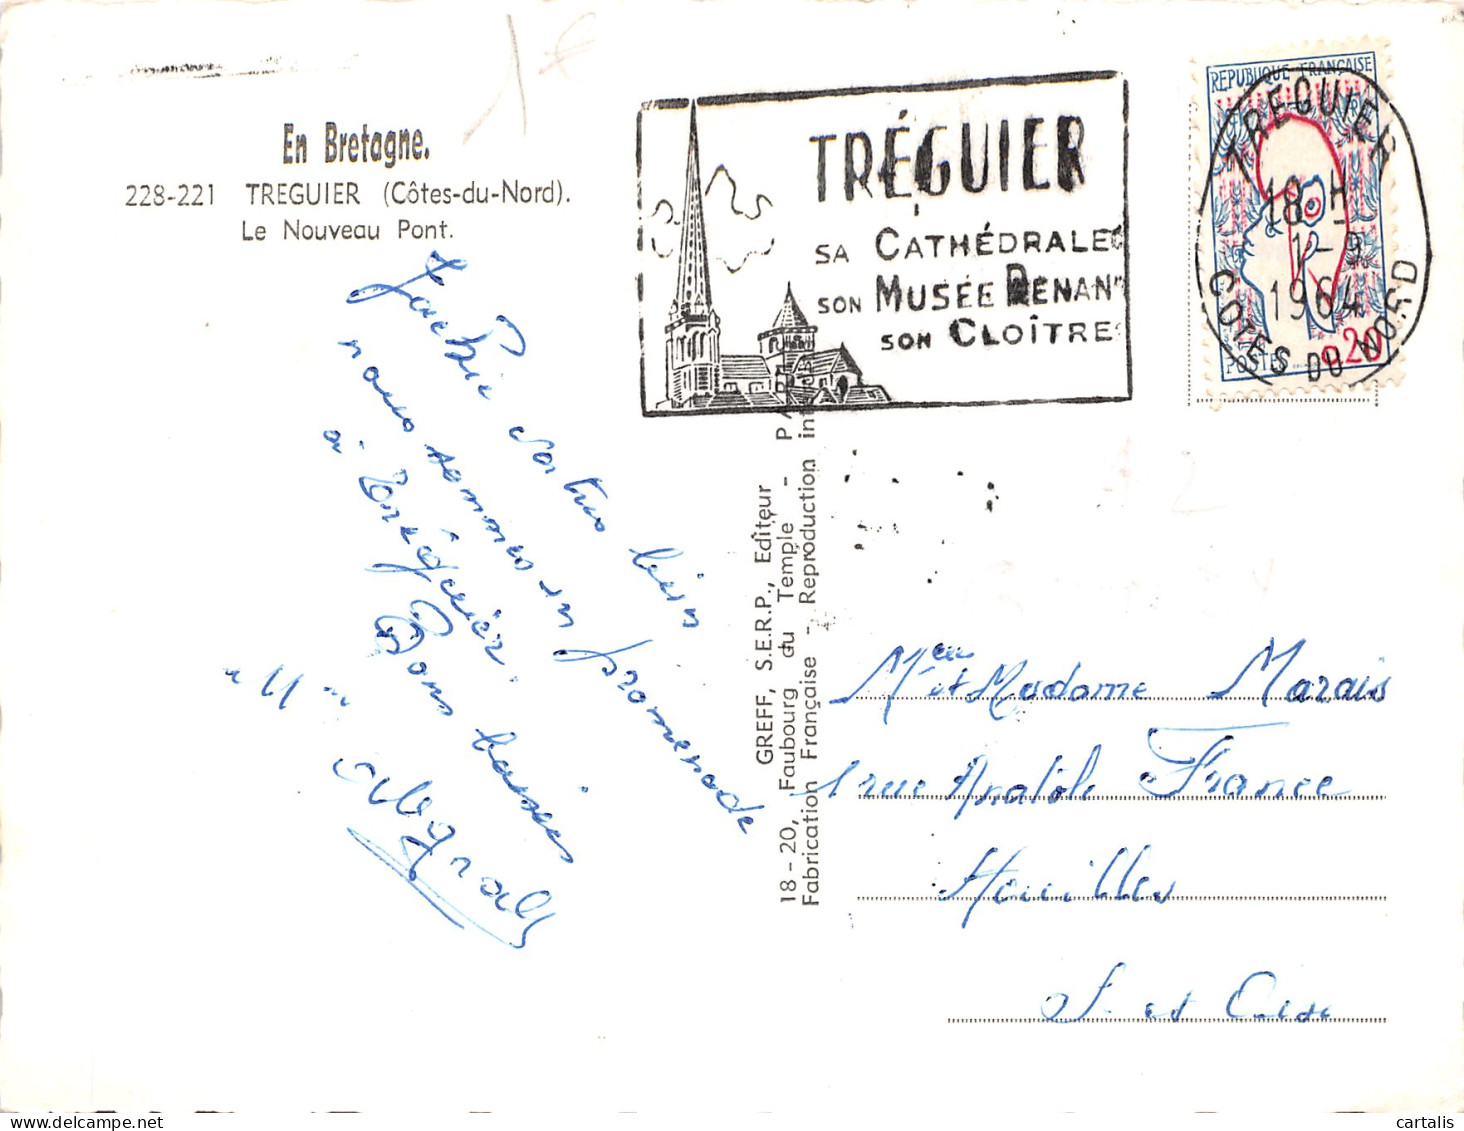 En Bretagne.
228-221 TREGUIER (Côtes-du-Nord).
Le Nouveau Pont.
TRÉGUIER
SA CATHÉDRALE
SON MUSÉE RENAN
SON CLOÎTRE
REPUBLIQUE FRANÇAISE
POSTES 0,20
TREGUIER
18 H
1-9
1964
COTES DU NORD
GREFF, S.E.R.P., Editeur
18-20, Faubourg du Temple - P
Fabrication Française - Reproduction inte
nous sommes en promenade
à Tréguier.
Bons baisers
Mr et Madame Marais
1 rue Anatole France
Houilles
S. et Oise
cartalis